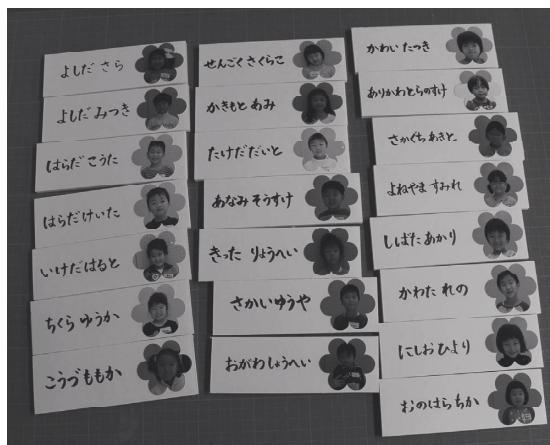 よしだ さら
よしだ みつき
はらだ こうた
はらだ けいた
いけだ はると
ちくら ゆうか
こうづ ももか
せんごく さくらこ
かきもと あみ
たけだ だいと
あなみ そうすけ
きった りょうへい
さかい ゆうや
おがわ しょうへい
かわい たつき
ありかわ とらのすけ
さかぐち あきと
よねやま すみれ
ししばた あかり
かわた れの
にしお ひより
おのはら ちか